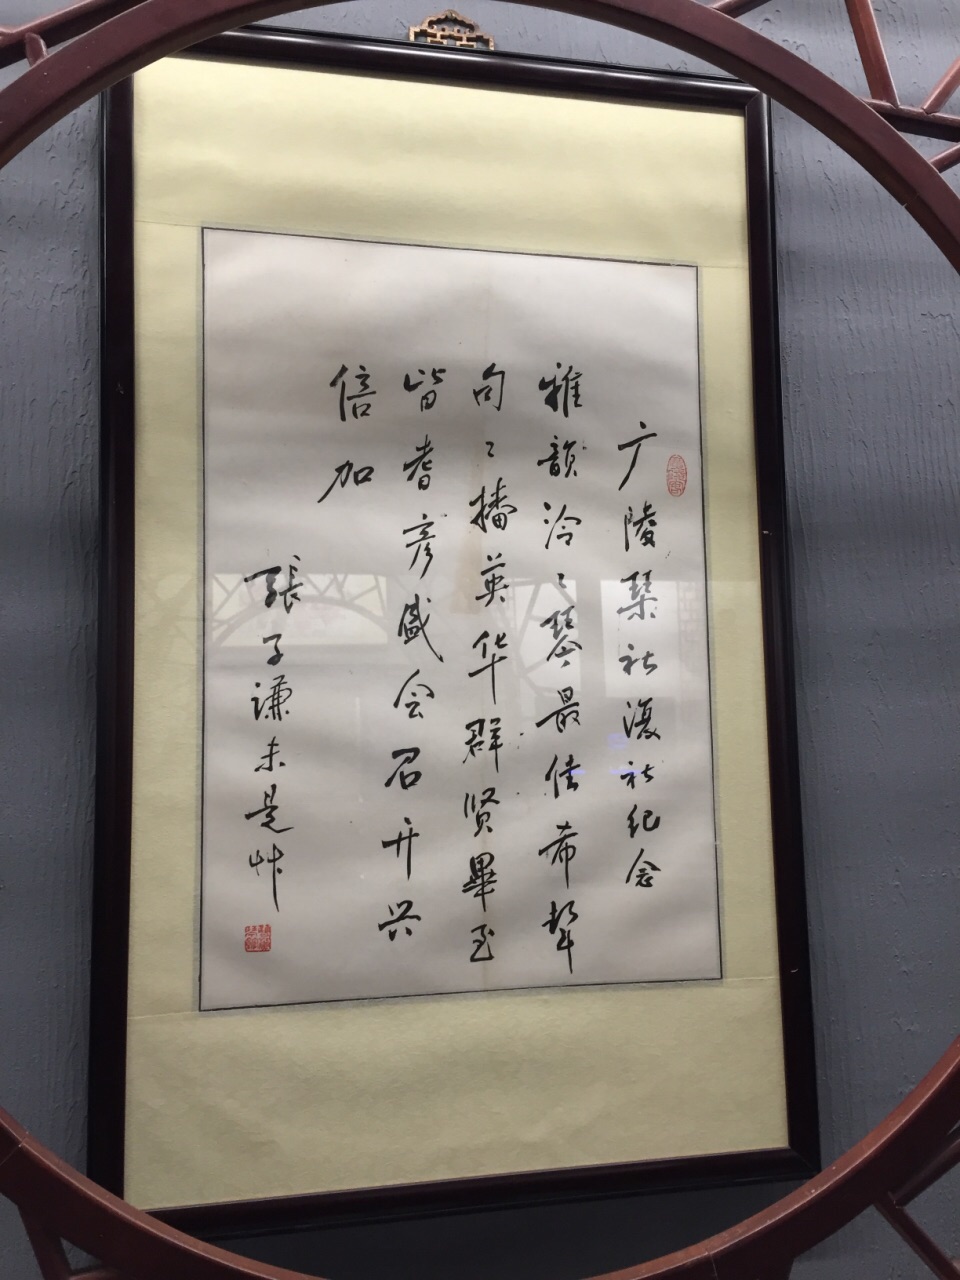 广陵琹社復社纪念
雅韻泠〻琴最佳希聲
句〻播英华群贤畢至
皆耆彦盛会召开兴
倍加
張子谦未是艸